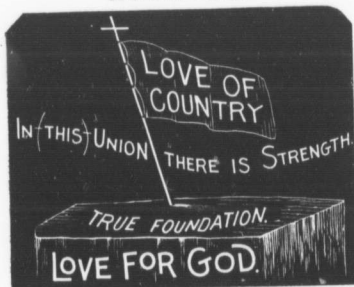 LOVE OF
COUNTRY
IN (THIS) UNION THERE IS STRENGTH.
TRUE FOUNDATION.
LOVE FOR GOD.